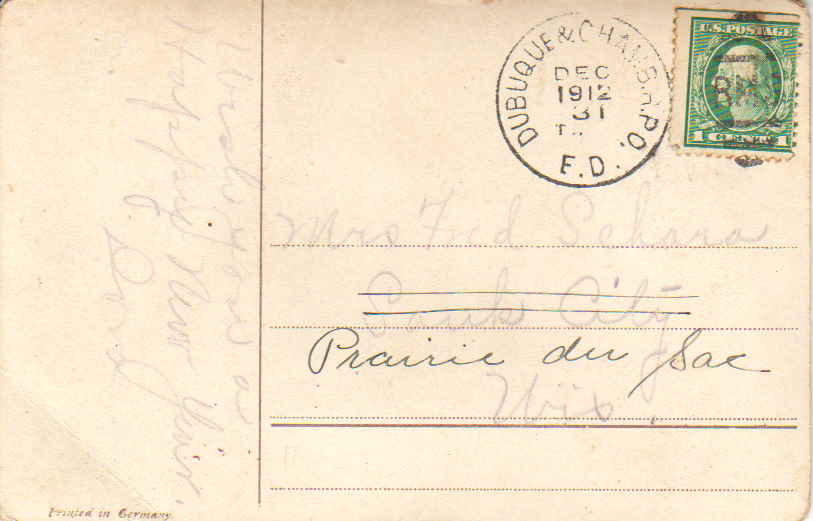 Wish you a
Happy New Year.
DUBUQUE & CHAM. R.P.O.
DEC
1912
31
E.D.
U.S. POSTAGE
1
Mrs Fred Schara
Sauk City
Prairie du Sac
Wis.
Printed in Germany.